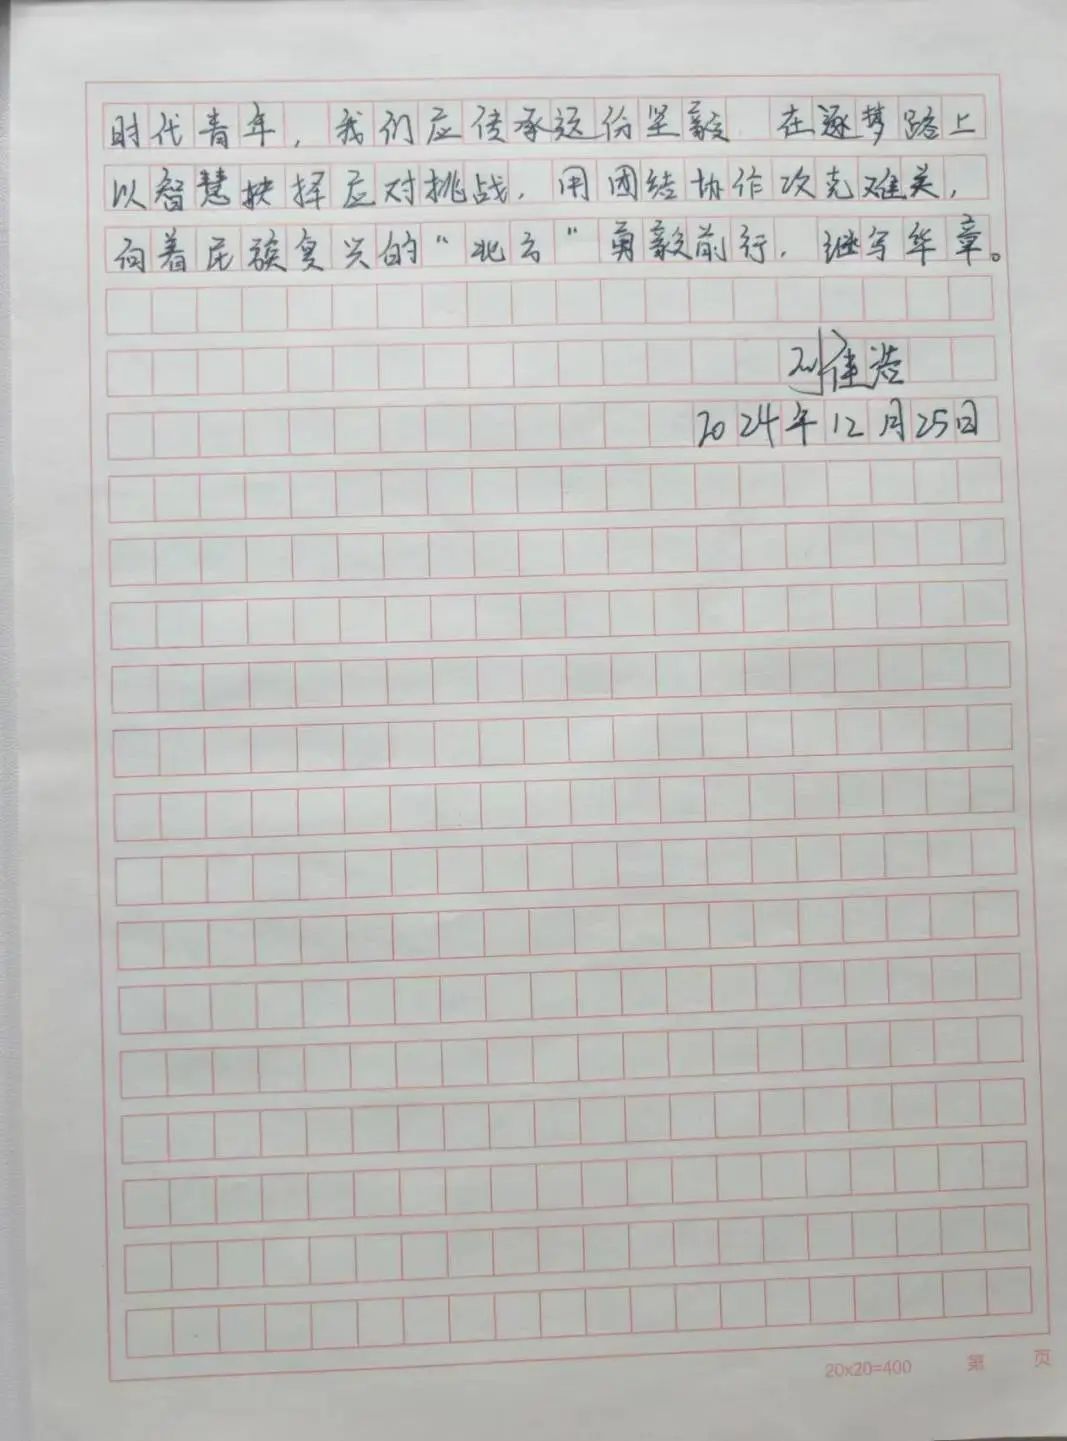 时代青年，我们应传承这份坚毅 在逐梦路上
以智慧抉择应对挑战，用团结协作攻克难关，
向着民族复兴的“北方”勇毅前行，继写华章。
刘佳浩
2024年12月25日
20x20=400 第 页